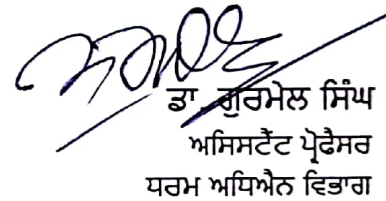 ਡਾ. ਗੁਰਮੇਲ ਸਿੰਘ
ਅਸਿਸਟੈਂਟ ਪ੍ਰੋਫੈਸਰ
ਧਰਮ ਅਧਿਐਨ ਵਿਭਾਗ